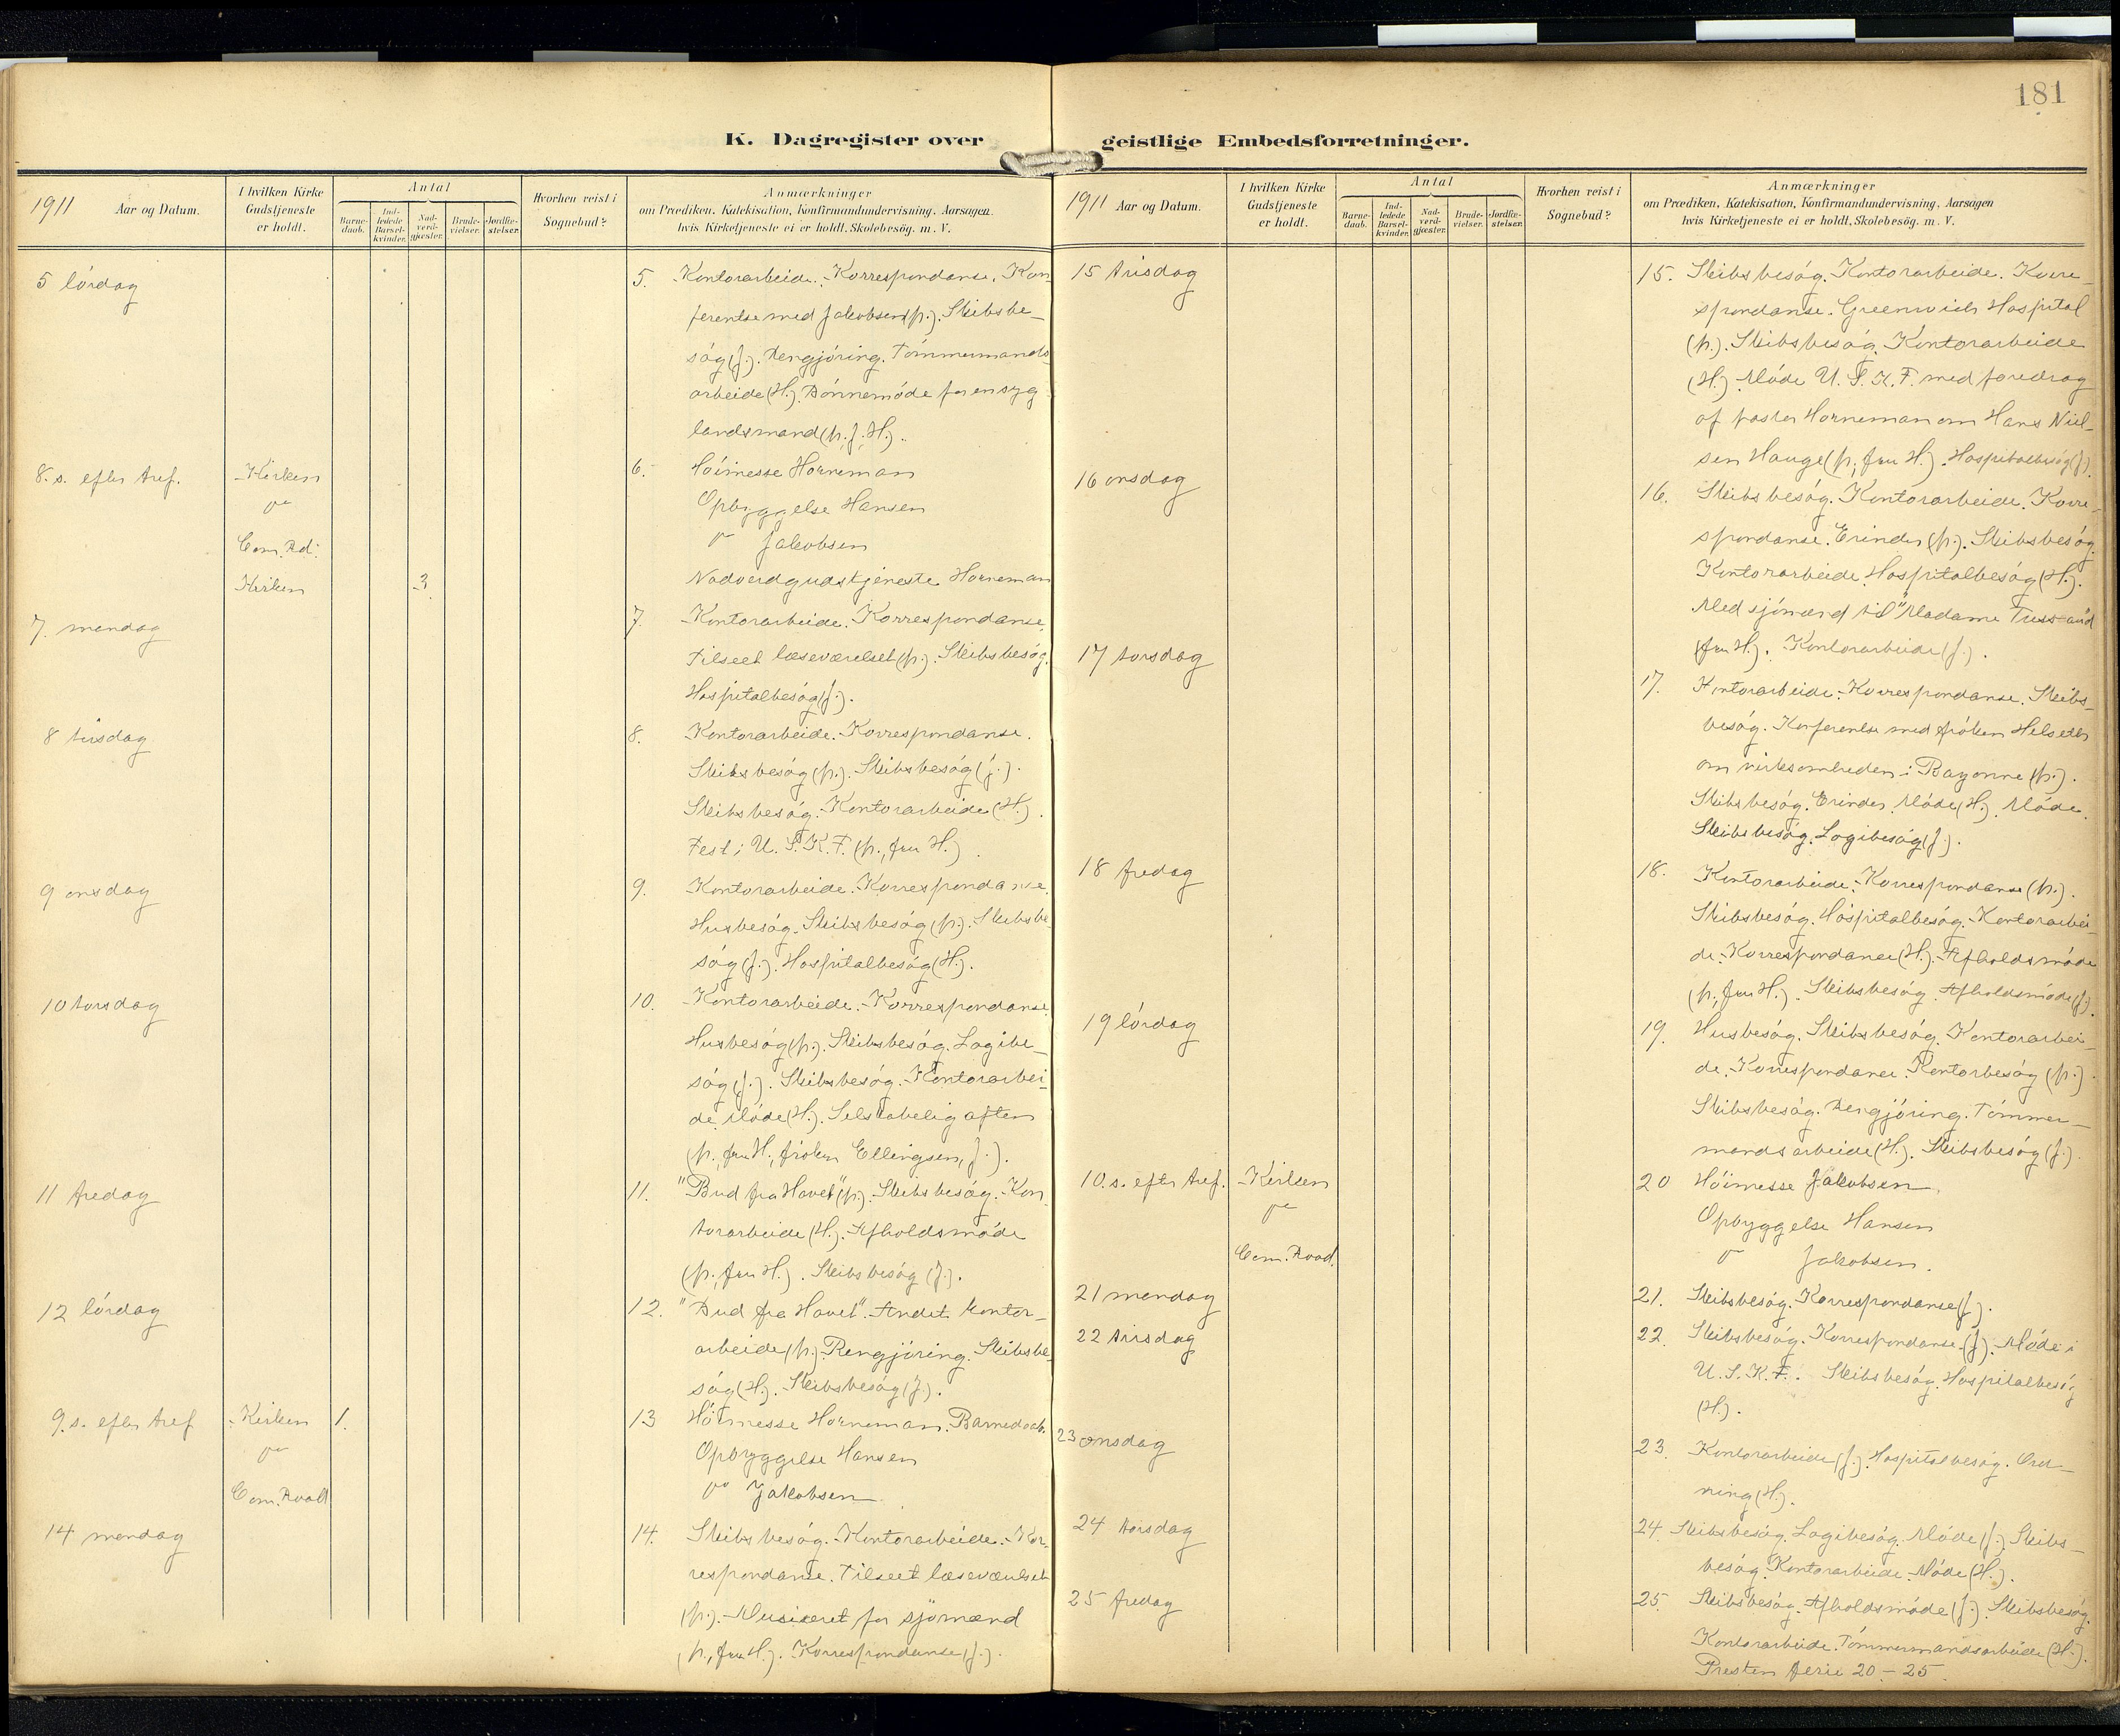 181
K. Dagregister over geistlige Embedsforretninger.
1911 Aar og Datum.
I hvilken Kirke Gudstjeneste er holdt.
Antal
Barne-daab.
Ind-ledede Barsel-kvinder.
Nad-verd-gjæster.
Brude-vielser.
Jordfæ-stelser.
Hvorhen reist i Sognebud?
Anmærkninger
om Prædiken, Katekisation, Konfirmandundervisning, Aarsagen
hvis Kirketjeneste ei er holdt, Skolebesög. m. V.
5 lördag
5. Kontorarbeide. Korrespondanse. Kon-
ferentse med Jakobsen (p.). Skibsbe-
søg (J.). Rengjöring. Tömmermands-
arbeide (H.). Bönnemöde for en syg
landsmand (p. J. H.).
8. s. efter tref. Kirken
6. Höimesse Horneman
Opbyggelse Hansen
Com. Rd. " Jakobsen
Kirken 3. Nadverdgudstjeneste Horneman
7. mandag
7. Kontorarbeide. Korrespondanse.
Tilseet læseværelset (p.). Skibsbesög.
Hospitalbesög (J.).
8 tirsdag
8. Kontorarbeide. Korrespondanse.
Skibsbesög (p.). Skibsbesög (J.).
Skibsbesög. Kontorarbeide (H.).
Fest i U. S. K. F. (p., fru H.)
9 onsdag
9. Kontorarbeide. Korrespondanse.
Husbesög. Skibsbesög (p.). Skibsbe-
søg (J.). Hospitalbesög (H.).
10 torsdag
10. Kontorarbeide. Korrespondanse.
Husbesög (p.). Skibsbesög. Logibe-
søg (J.). Skibsbesög. Kontorarbei-
de. Möde (H.). Selskabelig aften
(p., fru H., fröken Ellingsen, J.).
11 fredag
11. "Bud fra Havet" (p). Skibsbesög. Kon-
torarbeide (H.). Afholdsmöde
(p., fru H.). Skibsbesög (J.).
12 lördag
12. "Bud fra Havet". Andet kontor-
arbeide (p.). Rengjöring. Skibsbe-
søg (H.). Skibsbesög (J.).
9. s. efter tref Kirken 1.
13 Höimesse Horneman. Barnedaab.
Opbyggelse Hansen
Com. Road " Jakobsen
14 mandag
14. Skibsbesög. Kontorarbeide. Kor-
respondanse. Tilseet læseværelset
(p.). Musiceret for sjömænd
(p., fru H.). Korrespondanse (J.).
1911 Aar og Datum.
I hvilken Kirke Gudstjeneste er holdt.
Antal
Barne-daab.
Ind-ledede Barsel-kvinder.
Nad-verd-gjæster.
Brude-vielser.
Jordfæ-stelser.
Hvorhen reist i Sognebud?
Anmærkninger
om Prædiken, Katekisation, Konfirmandundervisning, Aarsagen
hvis Kirketjeneste ei er holdt, Skolebesög. m. V.
15 tirsdag
15. Skibsbesög. Kontorarbeide. Korre-
spondanse. Greenwich Hospital
(p.). Skibsbesög. Kontorarbeide
(H.). Möde U. S. K. F. med foredrag
af pastor Horneman om Hans Niel-
sen Hauge (p., fru H.). Hospitalbesög (J.)
16 onsdag
16. Skibsbesög. Kontorarbeide. Korre-
spondanse. Erinder (p.). Skibsbesög.
Kontorarbeide. Hospitalbesög (H.).
Med sjömænd til "Madame Tussaud
(fru H.). Kontorarbeide (J.).
17 torsdag
17. Kontorarbeide. Korrespondanse. Skibs-
besög. Konferentse med fröken Helseth
om virksomheden i Bayonne (p.).
Skibsbesög. Erinder. Möde (H.). Möde.
Skibsbesög. Logibesög (J.).
18 fredag
18. Kontorarbeide. Korrespondanse (p.).
Skibsbesög. Hospitalbesög. Kontorarbei-
de. Korrespondance (H.). Afholdsmöde
(p., fru H.). Skibsbesög. Afholdsmöde (J.).
19 lördag
19. Husbesög. Skibsbesög. Kontorarbei-
de. Korrespondance. Kontorbesög (p.)
Skibsbesög. Rengjöring. Tömmer-
mandsarbeide (H.). Skibsbesög (J.)
10. s. efter tref. Kirken
20 Höimesse Jakobsen
Opbyggelse Hansen
Com. Road. " Jakobsen.
21 mandag
21. Skibsbesög. Korrespondanse (J.).
22 tirsdag
22. Skibsbesög. Korrespondanse (J.). Möde i
U. S. K. F. Skibsbesög. Hospitalbesög
(H.).
23 onsdag
23. Kontorarbeide (J.). Hospitalbesög. Ord-
ning (H.).
24 torsdag
24. Skibsbesög. Logibesög. Möde (J.). Skibs-
besög. Kontorarbeide. Möde (H.).
25 fredag
25. Skibsbesög. Afholdsmöde (J.). Skibsbesög.
Kontorarbeide. Tömmermandsarbeide (H.).
Presten ferie 20 - 25.